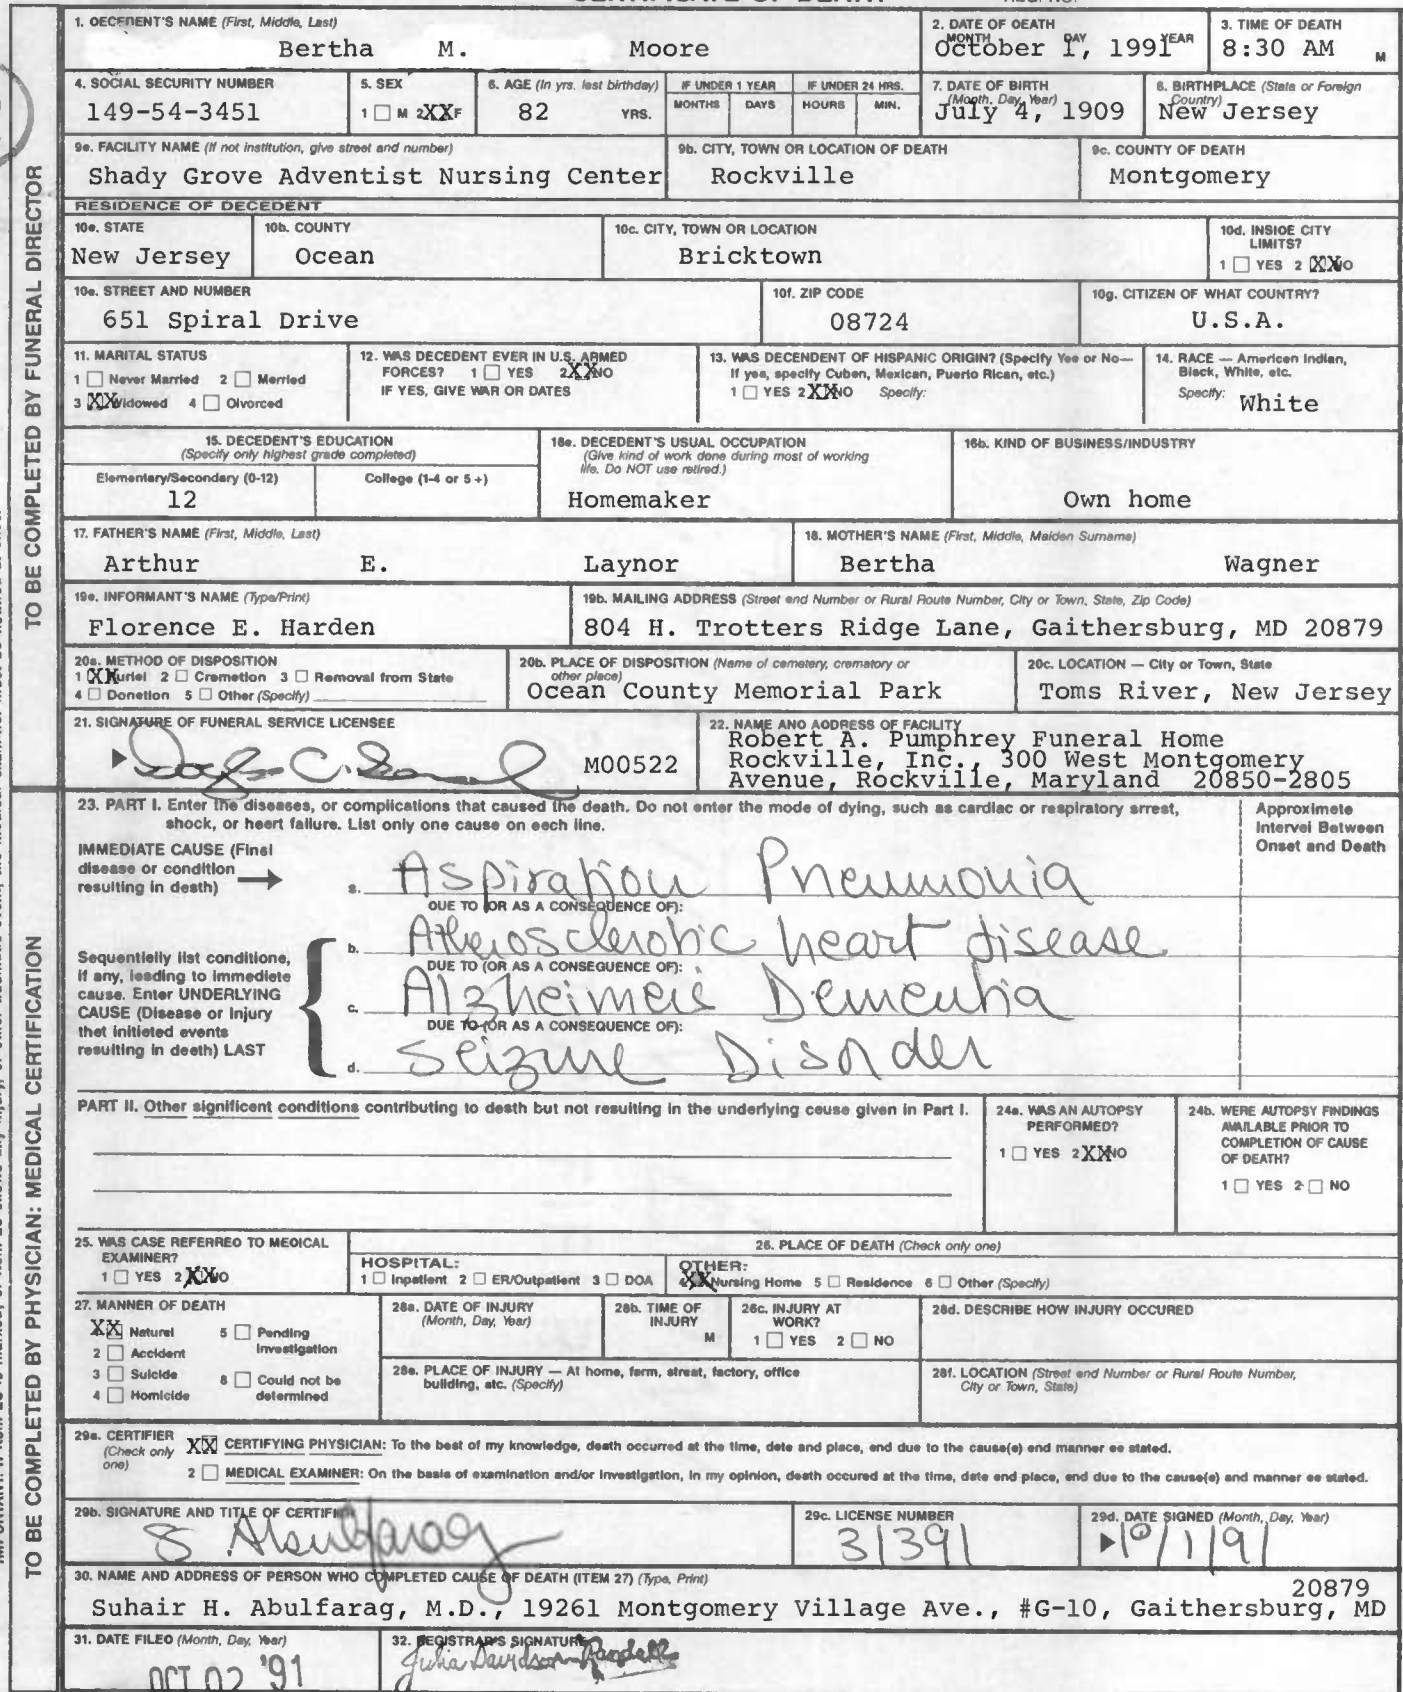 1. DECEDENT'S NAME (First, Middle, Last)
Bertha M. Moore
2. DATE OF DEATH
MONTH DAY YEAR
October 1, 1991
3. TIME OF DEATH
8:30 AM M
4. SOCIAL SECURITY NUMBER
149-54-3451
5. SEX
1 ☐ M 2 XX F
6. AGE (In yrs. last birthday)
82 YRS.
IF UNDER 1 YEAR
MONTHS DAYS
IF UNDER 24 HRS.
HOURS MIN.
7. DATE OF BIRTH
(Month, Day, Year)
July 4, 1909
8. BIRTHPLACE (State or Foreign Country)
New Jersey
9a. FACILITY NAME (If not institution, give street and number)
Shady Grove Adventist Nursing Center
9b. CITY, TOWN OR LOCATION OF DEATH
Rockville
9c. COUNTY OF DEATH
Montgomery
RESIDENCE OF DECEDENT
10a. STATE
New Jersey
10b. COUNTY
Ocean
10c. CITY, TOWN OR LOCATION
Bricktown
10d. INSIDE CITY
LIMITS?
1 ☐ YES 2 XX NO
10e. STREET AND NUMBER
651 Spiral Drive
10f. ZIP CODE
08724
10g. CITIZEN OF WHAT COUNTRY?
U.S.A.
11. MARITAL STATUS
1 ☐ Never Married 2 ☐ Married
3 XX Widowed 4 ☐ Divorced
12. WAS DECEDENT EVER IN U.S. ARMED
FORCES? 1 ☐ YES 2 XX NO
IF YES, GIVE WAR OR DATES
13. WAS DECENDENT OF HISPANIC ORIGIN? (Specify Yes or No—
If yes, specify Cuban, Mexican, Puerto Rican, etc.)
1 ☐ YES 2 XX NO Specify:
14. RACE — American Indian,
Black, White, etc.
Specify: White
15. DECEDENT'S EDUCATION
(Specify only highest grade completed)
Elementary/Secondary (0-12)
12
College (1-4 or 5+)
16a. DECEDENT'S USUAL OCCUPATION
(Give kind of work done during most of working
life. Do NOT use retired.)
Homemaker
16b. KIND OF BUSINESS/INDUSTRY
Own home
17. FATHER'S NAME (First, Middle, Last)
Arthur E. Laynor
18. MOTHER'S NAME (First, Middle, Maiden Surname)
Bertha Wagner
19a. INFORMANT'S NAME (Type/Print)
Florence E. Harden
19b. MAILING ADDRESS (Street and Number or Rural Route Number, City or Town, State, Zip Code)
804 H. Trotters Ridge Lane, Gaithersburg, MD 20879
20a. METHOD OF DISPOSITION
1 XX Burial 2 ☐ Cremation 3 ☐ Removal from State
4 ☐ Donation 5 ☐ Other (Specify)
20b. PLACE OF DISPOSITION (Name of cemetery, crematory or
other place)
Ocean County Memorial Park
20c. LOCATION — City or Town, State
Toms River, New Jersey
21. SIGNATURE OF FUNERAL SERVICE LICENSEE
M00522
22. NAME AND ADDRESS OF FACILITY
Robert A. Pumphrey Funeral Home
Rockville, Inc., 300 West Montgomery
Avenue, Rockville, Maryland 20850-2805
TO BE COMPLETED BY FUNERAL DIRECTOR
23. PART I. Enter the diseases, or complications that caused the death. Do not enter the mode of dying, such as cardiac or respiratory arrest,
shock, or heart failure. List only one cause on each line.
Approximate
Interval Between
Onset and Death
IMMEDIATE CAUSE (Final
disease or condition
resulting in death)
a. Aspiration Pneumonia
DUE TO (OR AS A CONSEQUENCE OF):
Sequentially list conditions,
if any, leading to immediate
cause. Enter UNDERLYING
CAUSE (Disease or injury
that initiated events
resulting in death) LAST
b. Atherosclerotic heart disease
DUE TO (OR AS A CONSEQUENCE OF):
c. Alzheimers Dementia
DUE TO (OR AS A CONSEQUENCE OF):
d. Seizure Disorder
PART II. Other significant conditions contributing to death but not resulting in the underlying cause given in Part I.
24a. WAS AN AUTOPSY
PERFORMED?
1 ☐ YES 2 XX NO
24b. WERE AUTOPSY FINDINGS
AVAILABLE PRIOR TO
COMPLETION OF CAUSE
OF DEATH?
1 ☐ YES 2 ☐ NO
25. WAS CASE REFERRED TO MEDICAL
EXAMINER?
1 ☐ YES 2 XX NO
26. PLACE OF DEATH (Check only one)
HOSPITAL:
1 ☐ Inpatient 2 ☐ ER/Outpatient 3 ☐ DOA
OTHER:
4 XX Nursing Home 5 ☐ Residence 6 ☐ Other (Specify)
27. MANNER OF DEATH
XX Natural 5 ☐ Pending
Investigation
2 ☐ Accident
3 ☐ Suicide 6 ☐ Could not be
4 ☐ Homicide determined
28a. DATE OF INJURY
(Month, Day, Year)
28b. TIME OF
INJURY
M
28c. INJURY AT
WORK?
1 ☐ YES 2 ☐ NO
28d. DESCRIBE HOW INJURY OCCURED
28e. PLACE OF INJURY — At home, farm, street, factory, office
building, etc. (Specify)
28f. LOCATION (Street and Number or Rural Route Number,
City or Town, State)
29a. CERTIFIER
(Check only
one)
XX CERTIFYING PHYSICIAN: To the best of my knowledge, death occurred at the time, date and place, and due to the cause(s) and manner as stated.
2 ☐ MEDICAL EXAMINER: On the basis of examination and/or investigation, in my opinion, death occured at the time, date and place, and due to the cause(s) and manner as stated.
29b. SIGNATURE AND TITLE OF CERTIFIER
S Abulfarag
29c. LICENSE NUMBER
31391
29d. DATE SIGNED (Month, Day, Year)
10/1/91
30. NAME AND ADDRESS OF PERSON WHO COMPLETED CAUSE OF DEATH (ITEM 27) (Type, Print)
20879
Suhair H. Abulfarag, M.D., 19261 Montgomery Village Ave., #G-10, Gaithersburg, MD
31. DATE FILED (Month, Day, Year)
OCT 02 '91
32. REGISTRAR'S SIGNATURE
Julia Davidson-Randall
TO BE COMPLETED BY PHYSICIAN: MEDICAL CERTIFICATION